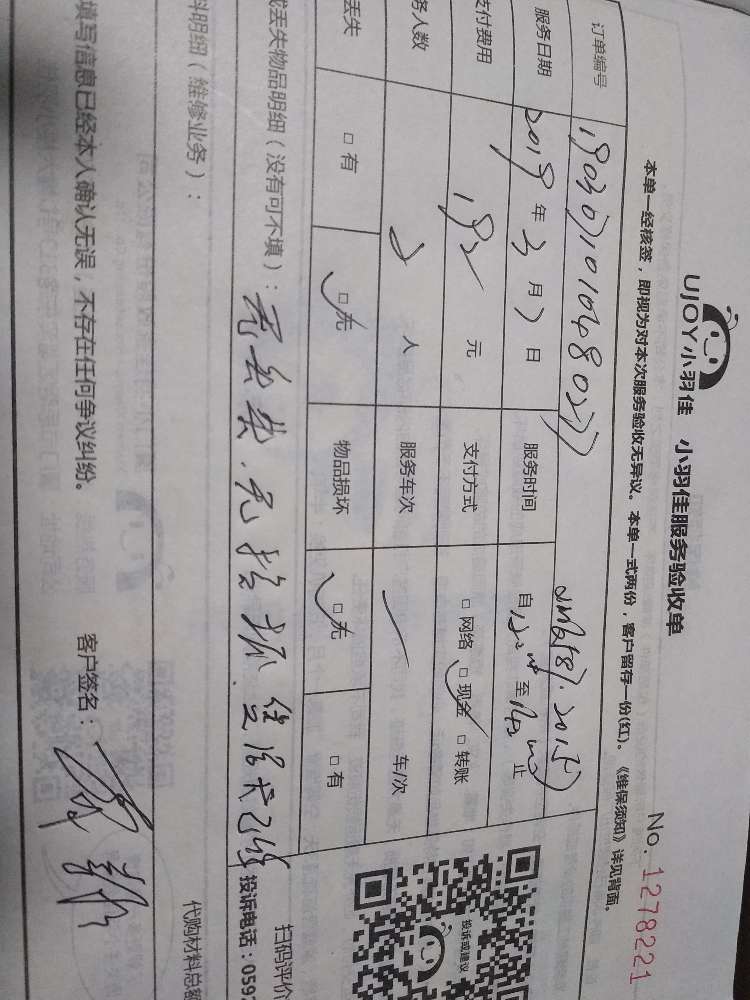 UJOY小羽佳 小羽佳服务验收单
No. 1278221
本单一经核签，即视为对本次服务验收无异议。本单一式两份，客户留存一份(红)。《维保须知》详见背面。
订单编号
服务日期 2019 年 3 月 7 日 服务时间 自 至 止
支付费用 192 元 支付方式 □ 网络 □ 现金 □ 转账
务人数 2 人 服务车次 车/次
丢失 □ 有 □ 无 物品损坏 □ 无 □ 有
或丢失物品明细（没有可不填）： 无丢失.无损坏
料明细（维修业务）：
扫码评价
投诉电话：0592
投诉或建议
代购材料总额
填写信息已经本人确认无误，不存在任何争议纠纷。 客户签名：